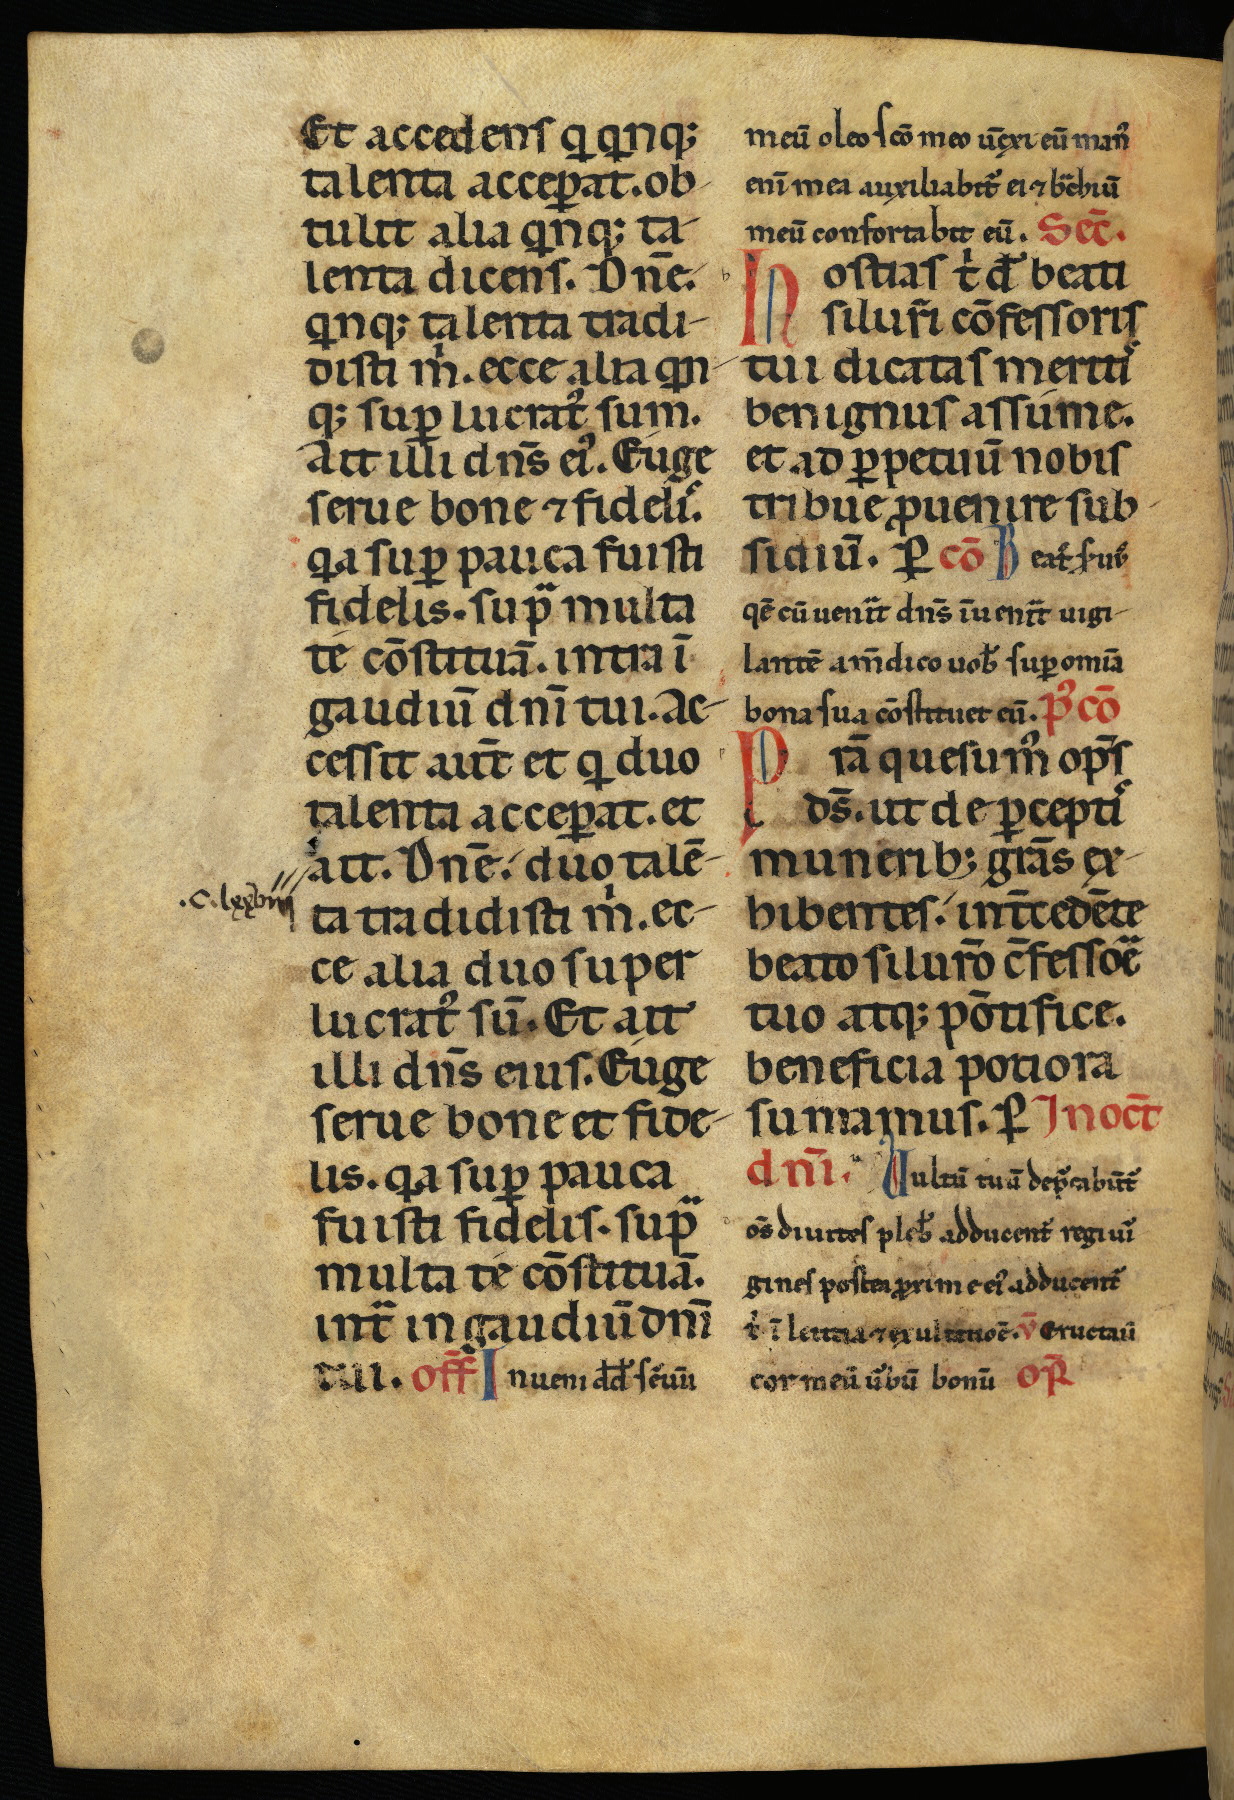 Et accedens q qnq;
talenta acceꝑat. ob
tulit alia qnq; ta
lenta dicens. Dn̄e.
qnq; talenta tradi-
disti m̍. ecce alia qn-
q; suꝑ lucrat᷒ sum.
Ait illi dn̄s ei᷒. Euge
serue bone ⁊ fideliˢ.
qa suꝑ pauca fuisti
fidelis. sup̃ multa
te cōstituā. intra ī
gaudiū dn̄i tui. Ac-
cessit aut̄ et q duo
talenta acceꝑat. et
ait. Dn̄e. duo talē-
.C.lxxviiii
ta tradidisti m̍. ec-
ce alia duo super
lucrat᷒ sū. Et ait
illi dn̄s eius. Euge
serue bone et fide-
lis. qa suꝑ pauca
fuisti fidelis. sup̃
multa te cōstituā.
int̃ in gaudiū dn̄i
tui. off̄ Inueni dd̄ s̄euū
meū oleo sc̄o meo ūxi eū man᷒
enī mea auxiliabit᷑ ei ⁊ bc̄hiū
meū confortabit eū. Sec̄.
Hostias t̍ d̄ beati
silur̄i cōfessoris
tui dicatas meritiˢ
benignus assume.
et ad ꝑpetuū nobis
tribue ꝓuenire sub-
sidiū. ꝑ cō Beat᷒ seru᷒
qē cū uenit̃ dn̄s īuenit̃ uigi-
lantē am̄ dico uob᷒ suꝑ omīa
bona sua cōstituet eū. p᷒cō
P rā quesum᷒ op̄s
ds̄. ut de ꝑceptiˢ
munerib; grās ex-
hibentes. int̄cedēte
beato silur̄o c̄fessōe
tuo atq; pōtifice.
beneficia potiora
sumamus. ꝑ In oct̄
dn̄i. Uultū tuū dep̄cabūt᷑
oms̄ diuites pleb᷒ adducent᷑ regi uı̄
gines postea ꝓxime ei᷒ adducent᷑
t̍ ī letitia ⁊ exultatioē. v̄ Eructauı̄
cor meū ūbū bonū oR̄